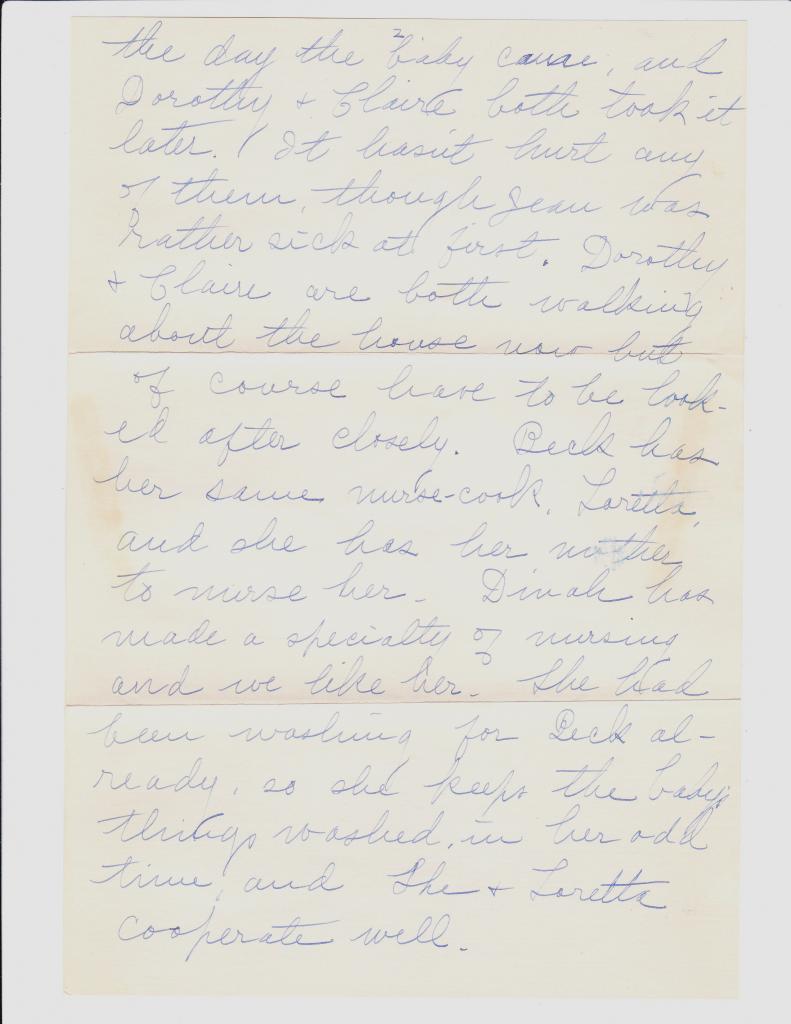 2
the day the baby came, and
Dorothy & Claire both took it
later. It hasn't hurt any
of them, though Jean was
rather sick at first. Dorothy
& Claire are both walking
about the house now but
of course have to be look-
ed after closely. Beck has
her same nurse-cook, Loretta,
and she has her mother
to nurse her. Dinah has
made a specialty of nursing
and we like her. She had
been washing for Beck al-
ready, so she keeps the baby's
things washed, in her odd
time, and She & Loretta
cooperate well.